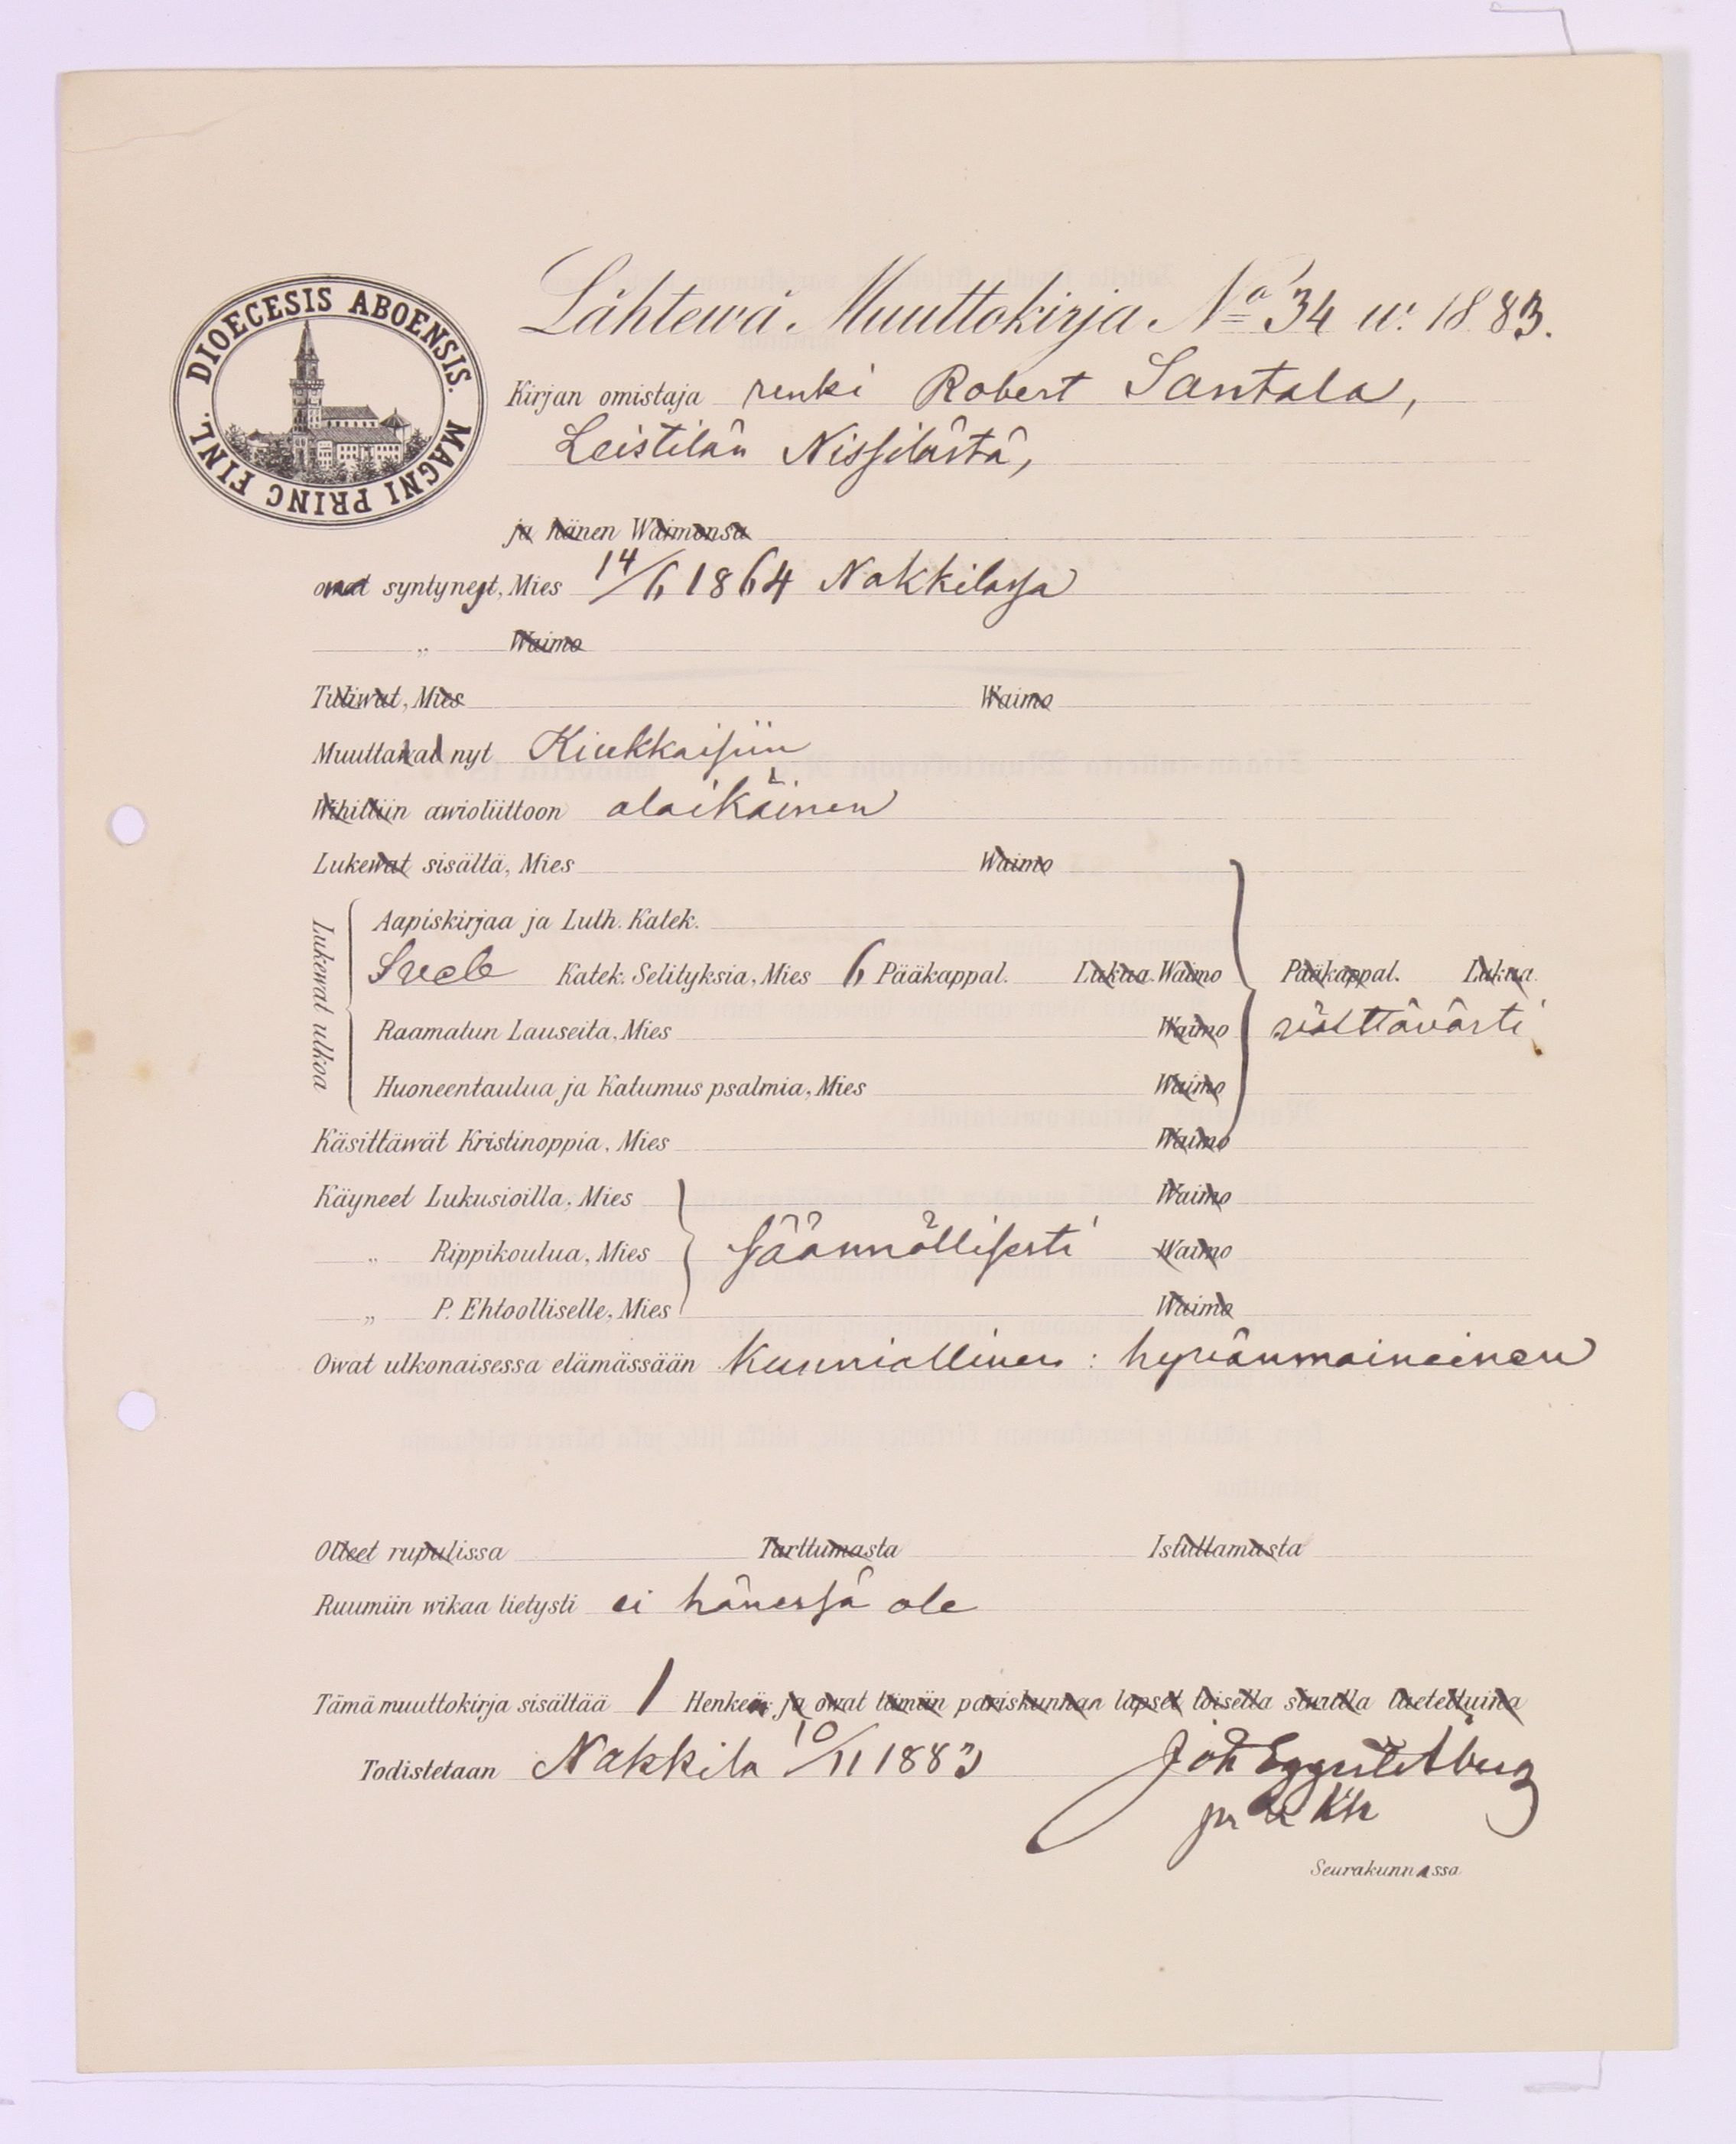 DIOECESIS ABOENSIS. MAGNI PRINC FINL.
Lähtewä Muuttokirja No 34 w. 1883.
Kirjan omistaja renki Robert Santala,
Leistilän Nissilästä,
ja hänen Waimonsa
owat syntyneet, Mies 14/6 1864 Nakkilassa
„ Waimo
Tuliwat, Mies Waimo
Muuttawat nyt Kiukkaisiin
Wihittiin awioliittoon alaikäinen
Lukewat sisältä, Mies Waimo
Lukewat ulkoa
Aapiskirjaa ja Luth. Katek.
Sveb Katek. Selityksiä, Mies 6 Pääkappal. Lukua. Waimo Pääkappal. Lukua.
Raamatun Lauseita, Mies Waimo välttävästi
Huoneentaulua ja Katumus psalmia, Mies Waimo
Käsittäwät Kristinoppia, Mies Waimo
Käyneet Lukusioilla, Mies Waimo
„ Rippikoulua, Mies säännöllisesti Waimo
„ P. Ehtoolliselle, Mies Waimo
Owat ulkonaisessa elämässään Kunniallinen: hyvänmaineinen
Olleet rupulissa Tarttumasta Istuttamasta
Ruumiin wikaa tietysti ei hänessä ole
Tämä muuttokirja sisältää 1 Henkeä; ja owat tämän pariskunnan lapset toisella siwulla luetettuina
Todistetaan Nakkila 10/11 1883 Joh Eggert Åberg
Seurakunnassa